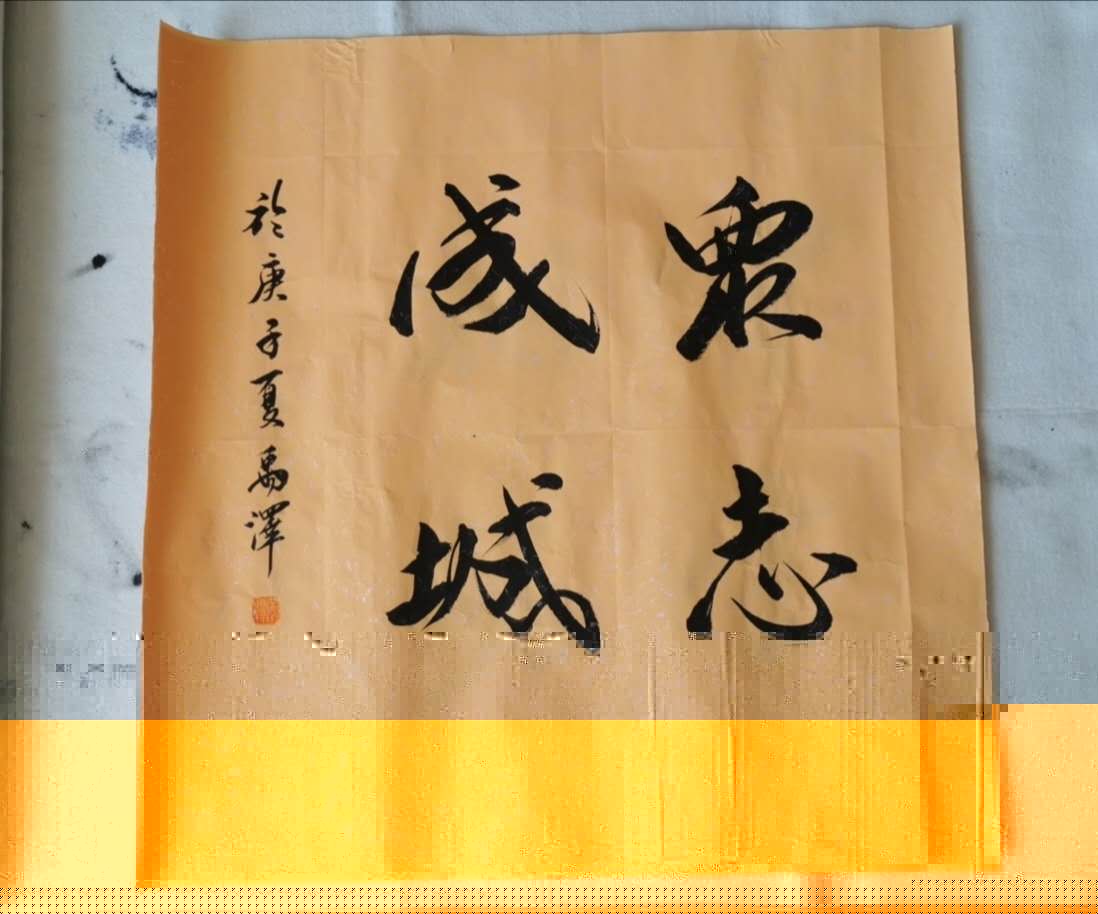 眾志
成城
於庚子夏禹澤